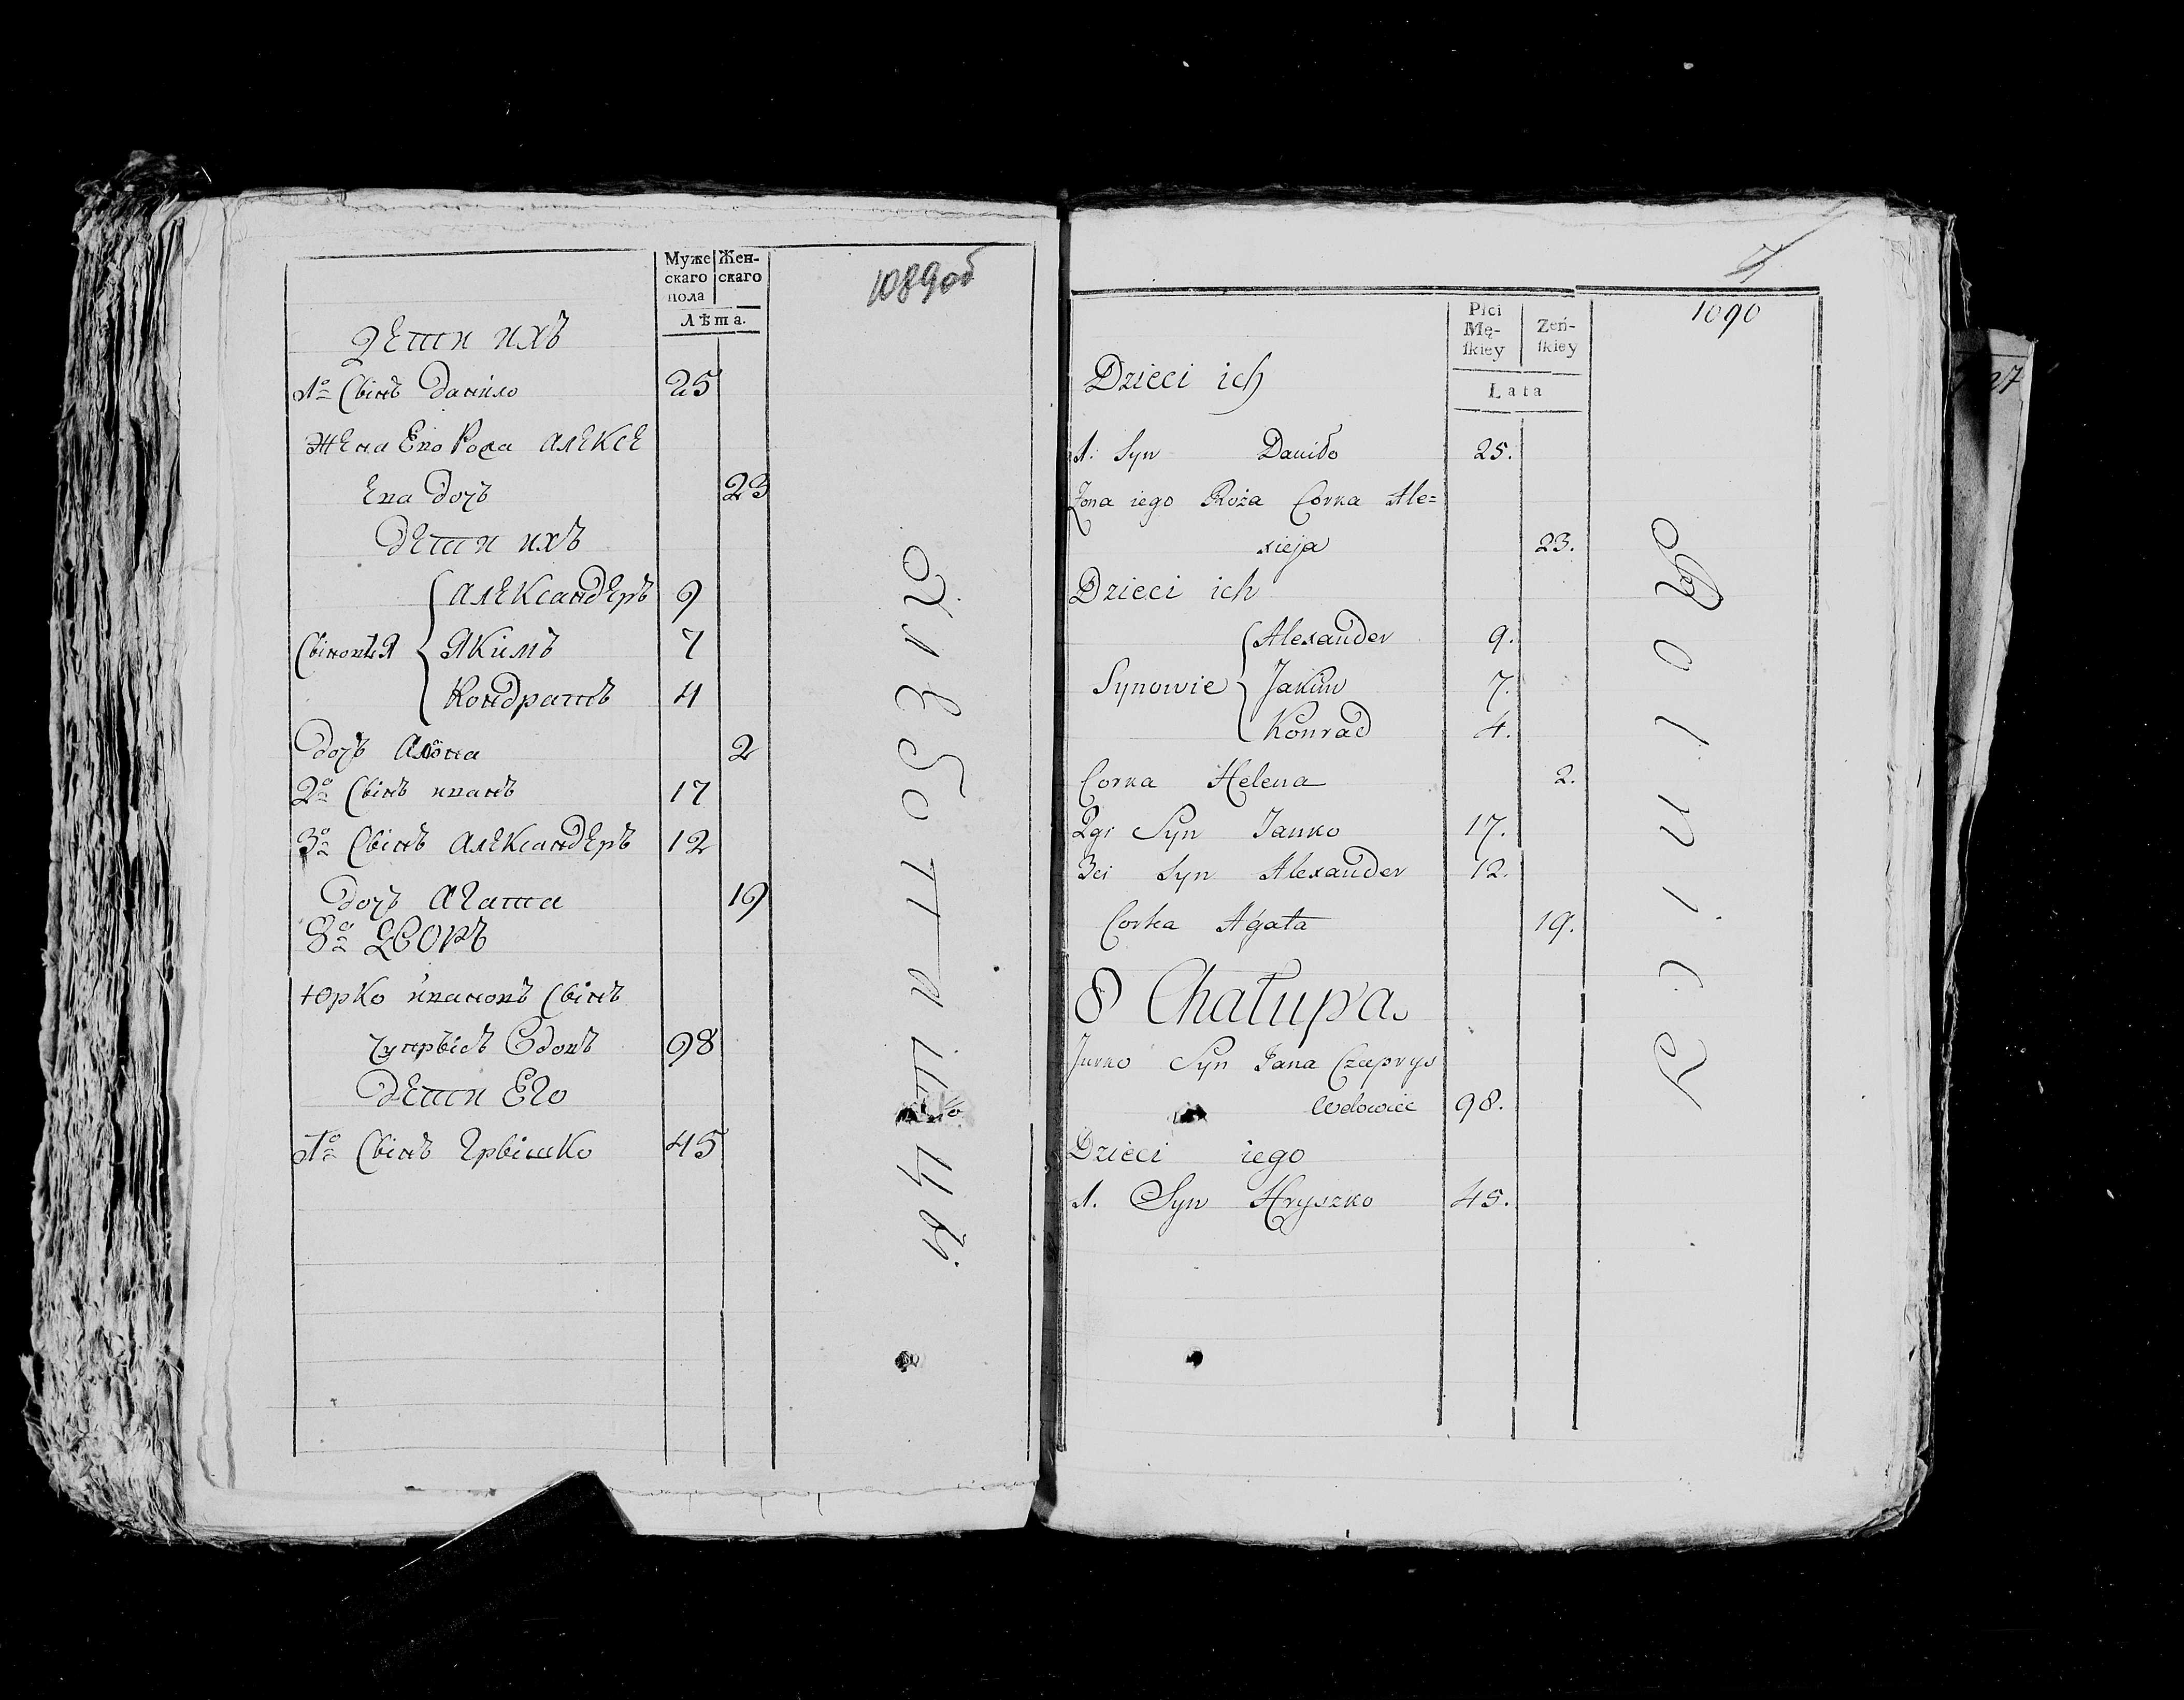 1089об
Муже
скаго
пола
Жен-
скаго
Лѣта.
Дети ихъ
1о Свінъ Данило 25
Жена Его Роза Алексе
Ева дочъ 23
Дети ихъ
Александеръ 9
Свіновья Якимъ 7
Кондратъ 4
Дочъ Алёна 2
2о Свінъ иванъ 17
3о Свінъ Александеръ 12
Дочъ Агата 19
8о Дворъ
Юрко ивановъ Свінъ
Чупрвісъ Вдовъ 98
Дети Его
1о Свінъ Грвішко 45
1090
Płci
Mę-
skiey
Żeń-
skiey
Lata
Dzieci ich
1. Syn Daniło 25.
Żona iego Roża Corka Ale=
xieja 23.
Dzieci ich
Alexander 9.
Synowie Jakim 7.
Konrad 4.
Corka Helena 2.
2gi Syn Janko 17.
3ci Syn Alexander 12.
Corka Agata 19.
8 Chałupa.
Jurko Syn Jana Czuprys
Wdowiec 98.
Dzieci iego
1. Syn Hryszko 45.
27